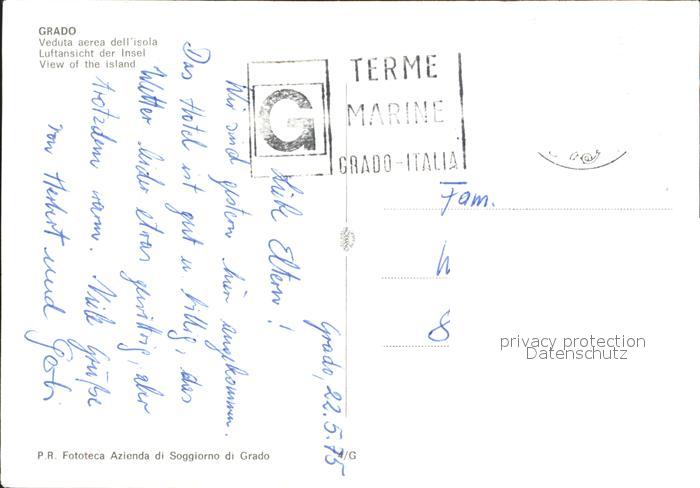 GRADO
Veduta aerea dell'isola
Luftansicht der Insel
View of the island
TERME
MARINE
GRADO-ITALIA
G
Grado, 22.5.75
Liebe Eltern!
Wir sind gestern hier angekommen.
Das Hotel ist gut u. billig, das
Wetter leider etwas gewittrig, aber
trotzdem warm. Viele Grüße
von Herbert und Gabi
Fam.
privacy protection
Datenschutz
P.R. Fototeca Azienda di Soggiorno di Grado
4/G